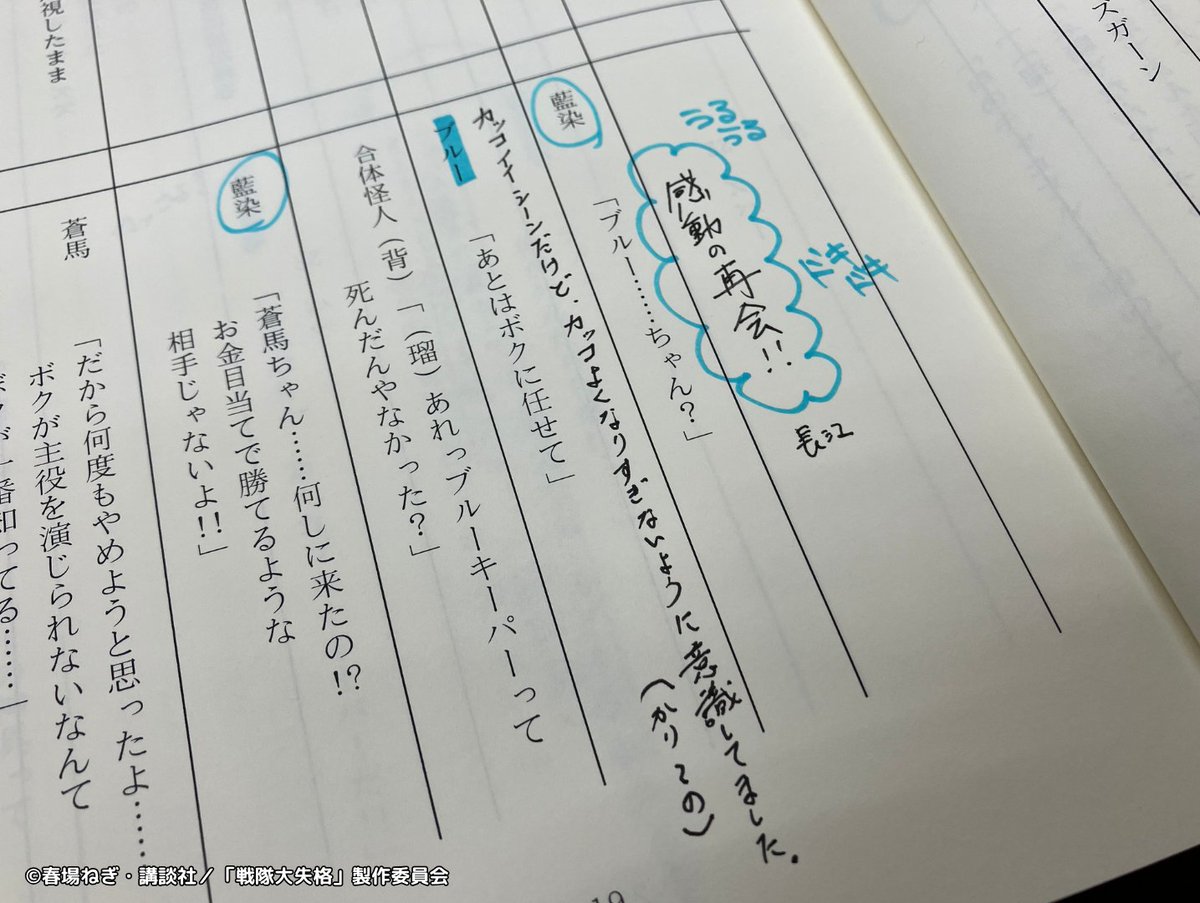 ズガーン
うるうる
感動の再会!!
ドキドキ
長江
藍染
「ブルー……ちゃん?」
カッコイイシーンだけど、カッコよくなりすぎないように意識してました。
(かりこの)
ブルー
「あとはボクに任せて」
合体怪人(背)
「(瑠)あれっブルーキーパーって
死んだんやなかった?」
藍染
「蒼馬ちゃん……何しに来たの!?
お金目当てで勝てるような
相手じゃないよ!!」
蒼馬
「だから何度もやめようと思ったよ……
ボクが主役を演じられないなんて
番知ってる……」
視したまま
19
©春場ねぎ・講談社/「戦隊大失格」製作委員会